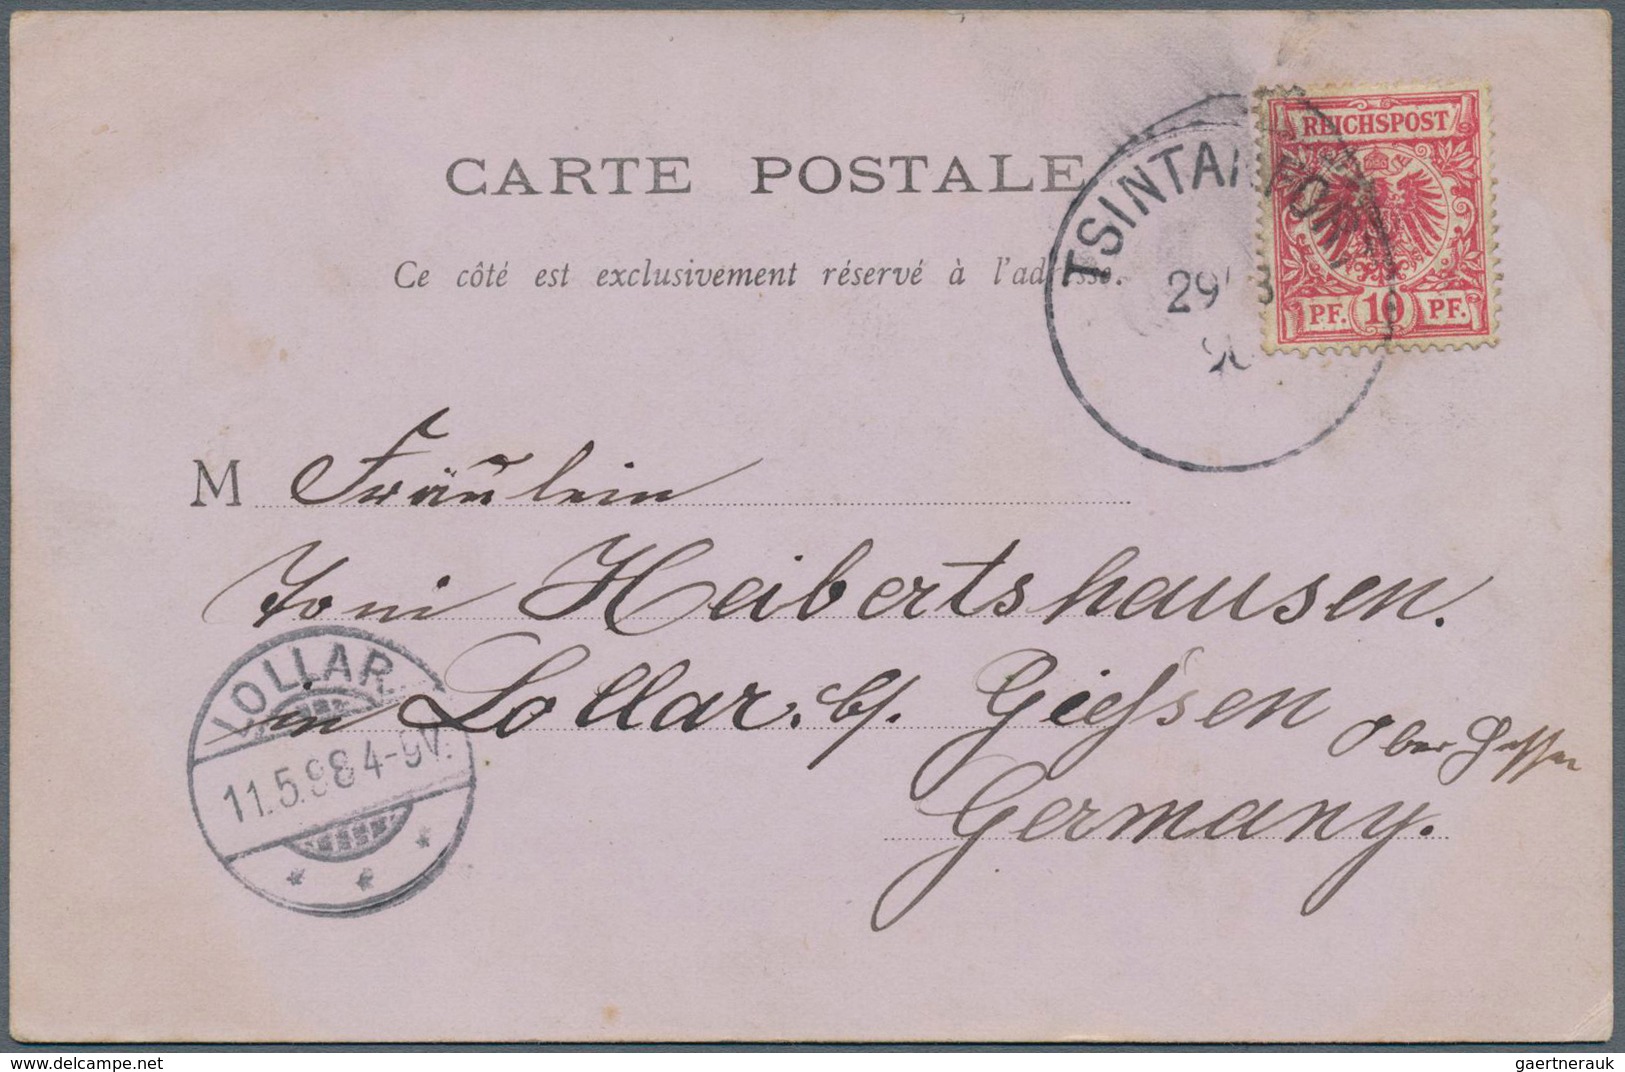 CARTE POSTALE
Ce côté est exclusivement réservé à l'adresse.
REICHSPOST
PF. 10 PF.
TSINTANFORT
29/3
98
M Fräulein
Toni Heibertshausen.
in Lollar. b/. Gießen Ober Hessen
Germany.
LOLLAR.
11.5.98 4-9V.
www.delcampe.net
gaertnerauk